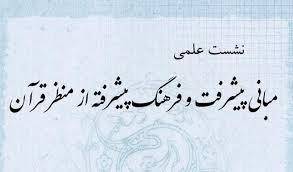 نشست علمی
مبانی پیشرفت و فرهنگ پیشرفته از منظر قرآن